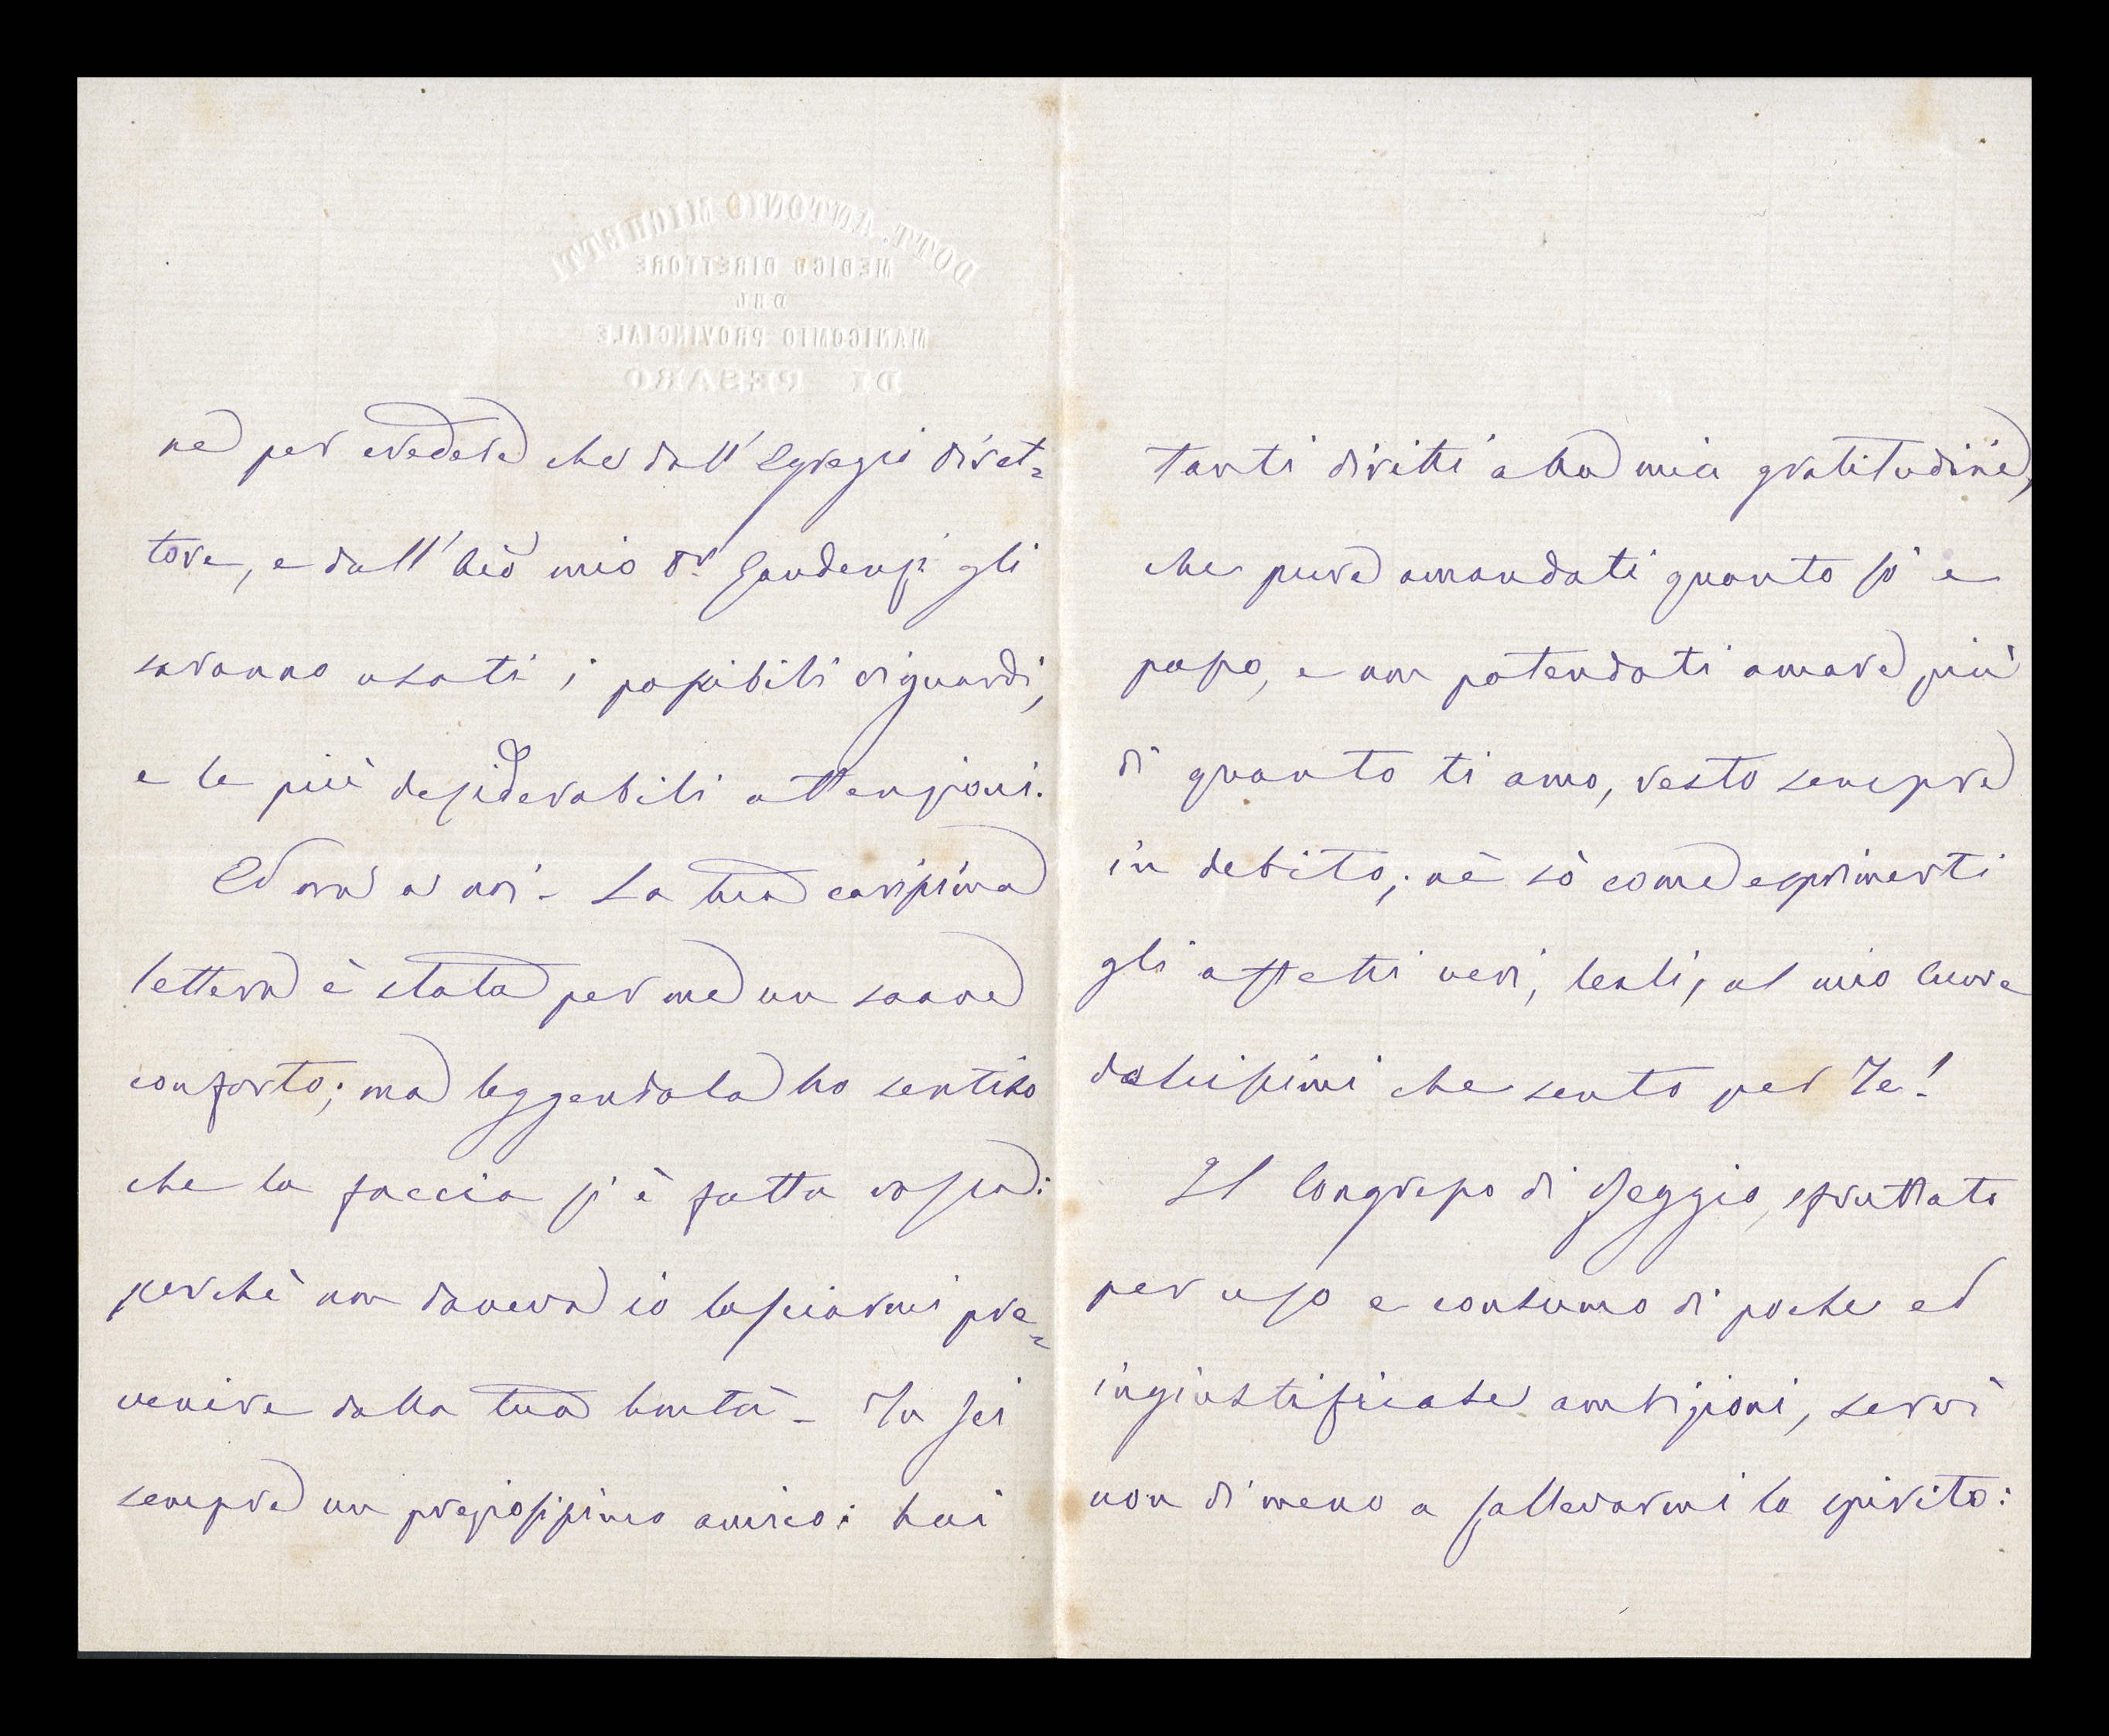 DOTT. ANTONIO MICHETTI
MEDICO DIRETTORE
DEL
MANICOMIO PROVINCIALE
DI PESARO
ne per credere che dall'Egregio Diret=
tore, e dall' mio Dr. Gaudenzi gli
saranno usati i possibili riguardi,
e le più desiderabili attenzioni.
Ed ora a noi - La tua carissima
lettera è stata per me un soave
conforto; ma leggendola ho sentito
che la faccia si è fatta rossa:
perchè non doveva io lasciarmi pre=
venire dalla tua bontà - Tu sei
sempre un preziosissimo amico: hai
tanti diritti alla mia gratitudine,
che pure amandoti quanto so e
posso, e non potendoti amare più
di quanto ti amo, resto sempre
in debito; nè sò come esprimerti
gli affetti veri, leali, al mio cuore
dolcissimi che sento per Te!
Il Congresso di Reggio, sfruttato
per uso e consumo di poche ed
ingiustificate ambizioni, servì
non di meno a sollevarmi lo spirito: